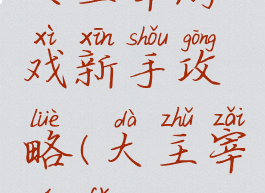 xì xīn shǒu gōng
戏新手攻
lüè dà zhǔ zǎi
略(大主宰